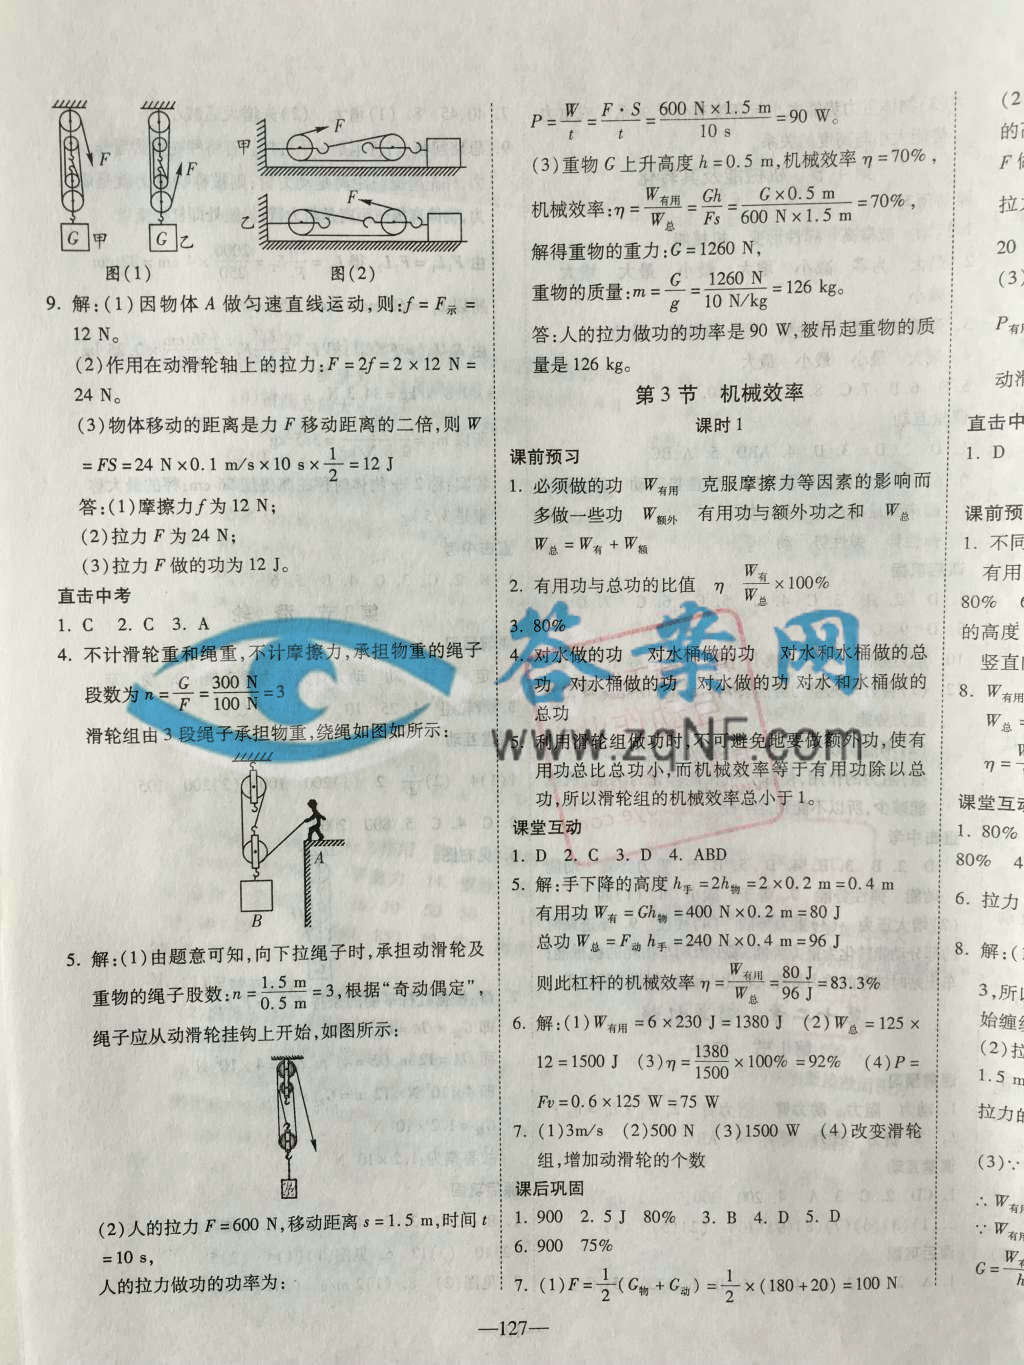 F
F
G 甲
G 乙
甲
F
乙
F
图(1)
图(2)
9. 解:(1)因物体 A 做匀速直线运动,则:f = F示 =
12 N。
(2)作用在动滑轮轴上的拉力:F = 2f = 2 × 12 N =
24 N。
(3)物体移动的距离是力 F 移动距离的二倍,则 W
= FS = 24 N × 0.1 m/s × 10 s × 1/2 = 12 J
答:(1)摩擦力 f 为 12 N;
(2)拉力 F 为 24 N;
(3)拉力 F 做的功为 12 J。
直击中考
1. C 2. C 3. A
4. 不计滑轮重和绳重,不计摩擦力,承担物重的绳子
段数为 n = G/F = 300 N/100 N = 3
滑轮组由 3 段绳子承担物重,绕绳如图如所示:
A
B
5. 解:(1)由题意可知,向下拉绳子时,承担动滑轮及
重物的绳子股数:n = 1.5 m/0.5 m = 3,根据“奇动偶定”,
绳子应从动滑轮挂钩上开始,如图所示:
物
(2)人的拉力 F = 600 N,移动距离 s = 1.5 m,时间 t
= 10 s,
人的拉力做功的功率为:
P = W/t = F·S/t = 600 N × 1.5 m/10 s = 90 W。
(3)重物 G 上升高度 h = 0.5 m,机械效率 η = 70%,
机械效率:η = W有用/W总 = Gh/Fs = G × 0.5 m/600 N × 1.5 m = 70%,
解得重物的重力:G = 1260 N,
重物的质量:m = G/g = 1260 N/10 N/kg = 126 kg。
答:人的拉力做功的功率是 90 W,被吊起重物的质
量是 126 kg。
第 3 节 机械效率
课时 1
课前预习
1. 必须做的功 W有用 克服摩擦力等因素的影响而
多做一些功 W额外 有用功与额外功之和 W总
W总 = W有 + W额
2. 有用功与总功的比值 η W有/W总 × 100%
3. 80%
4. 对水做的功 对水桶做的功 对水和水桶做的总
功 对水桶做的功 对水做的功 对水和水桶做的
总功
5. 利用滑轮组做功时,不可避免地要做额外功,使有
用功总比总功小,而机械效率等于有用功除以总
功,所以滑轮组的机械效率总小于 1。
课堂互动
1. D 2. C 3. D 4. ABD
5. 解:手下降的高度 h手 = 2h物 = 2 × 0.2 m = 0.4 m
有用功 W有 = Gh物 = 400 N × 0.2 m = 80 J
总功 W总 = F动 h手 = 240 N × 0.4 m = 96 J
则此杠杆的机械效率 η = W有用/W总 = 80 J/96 J = 83.3%
6. 解:(1)W有用 = 6 × 230 J = 1380 J (2)W总 = 125 ×
12 = 1500 J (3)η = 1380/1500 × 100% = 92% (4)P =
Fv = 0.6 × 125 W = 75 W
7. (1)3m/s (2)500 N (3)1500 W (4)改变滑轮
组,增加动滑轮的个数
课后巩固
1. 900 2. 5 J 80% 3. B 4. D 5. D
6. 900 75%
7. (1)F = 1/2(G物 + G动) = 1/2 × (180 + 20) = 100 N
(2
的
F 做
拉力
20
(3)
P有
动滑
直击中
1. D
课前预
1. 不同
有用
80%
的高度
竖直
8. W有用
W总 =
η =
课堂互动
1. 80%
80% 4
6. 拉力
8. 解:(
3,所以
始缠绕
(2)拉
1.5 m
拉力的
(3)∵
∴ W有
∵ W有
G = W有/h
答案网
www.zqNF.com
—127—